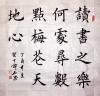 讀書之樂
何處尋數
點梅花天
地心